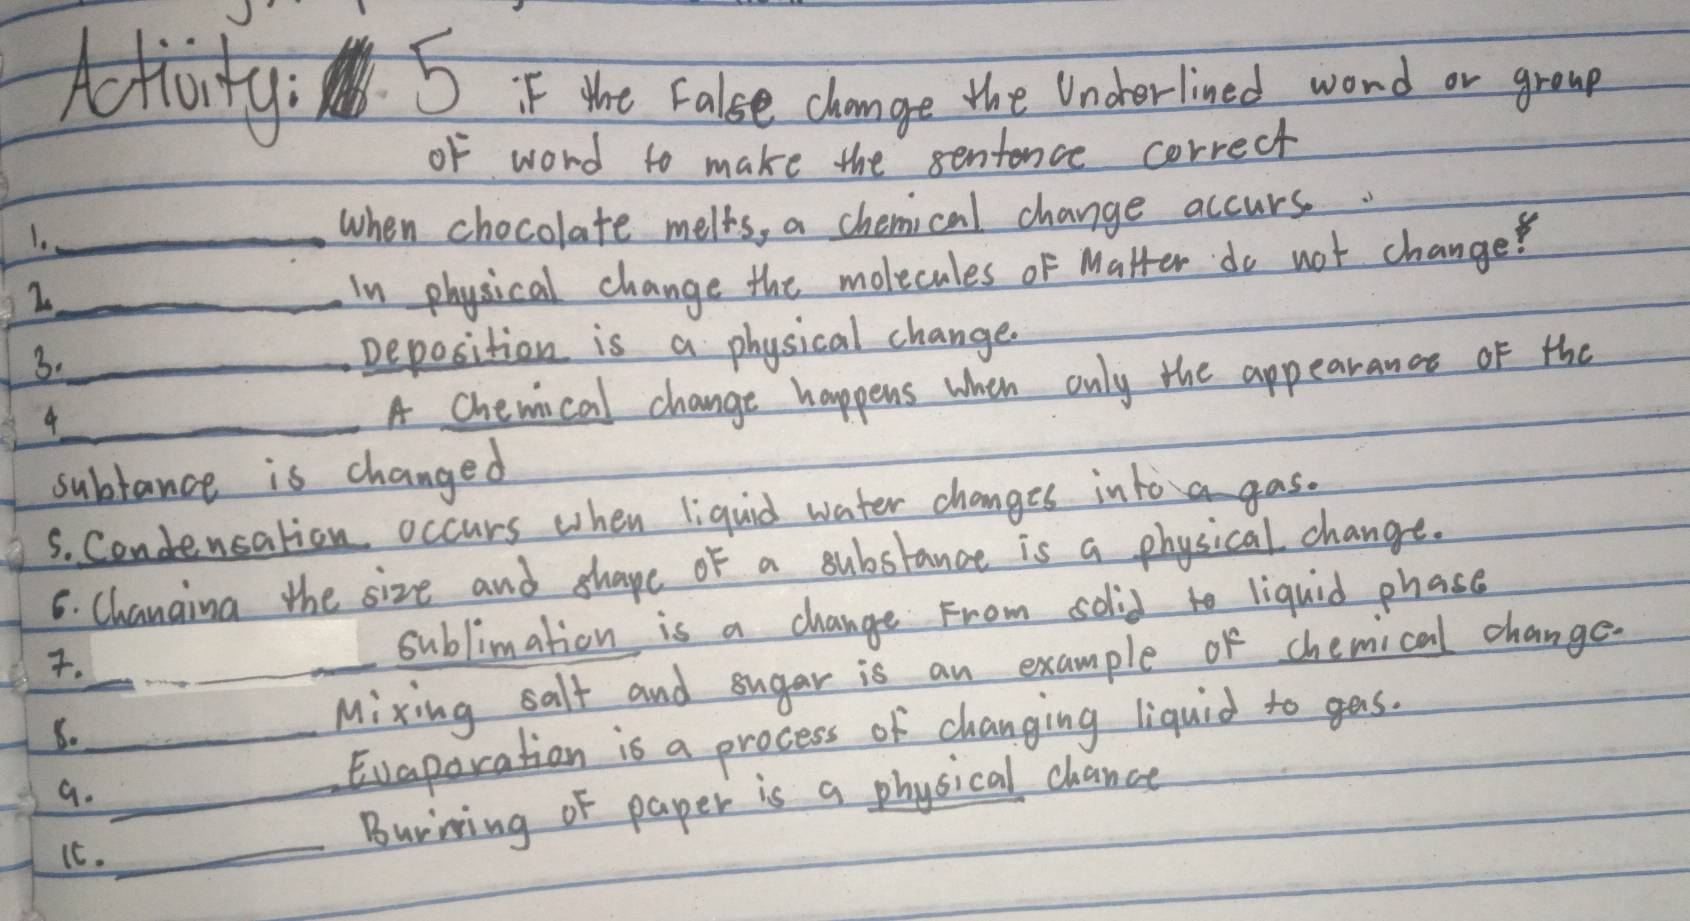 Activity: 5 if the False change the Underlined word or group
of word to make the sentence correct
1. When chocolate melts, a chemical change accurs.
2. In physical change the molecules of Matter do not change
3. Deposition is a physical change.
4 A Chemical change happens when only the appearance of the
subtance is changed
5. Condensation occurs when liquid water changes into a gas.
6. Changing the size and shape of a substance is a physical change.
7. sublimation is a change From solid to liquid phase
8. Mixing salt and sugar is an example of chemical change.
9. Evaporation is a process of changing liquid to gas.
10. Burning of paper is a physical chance